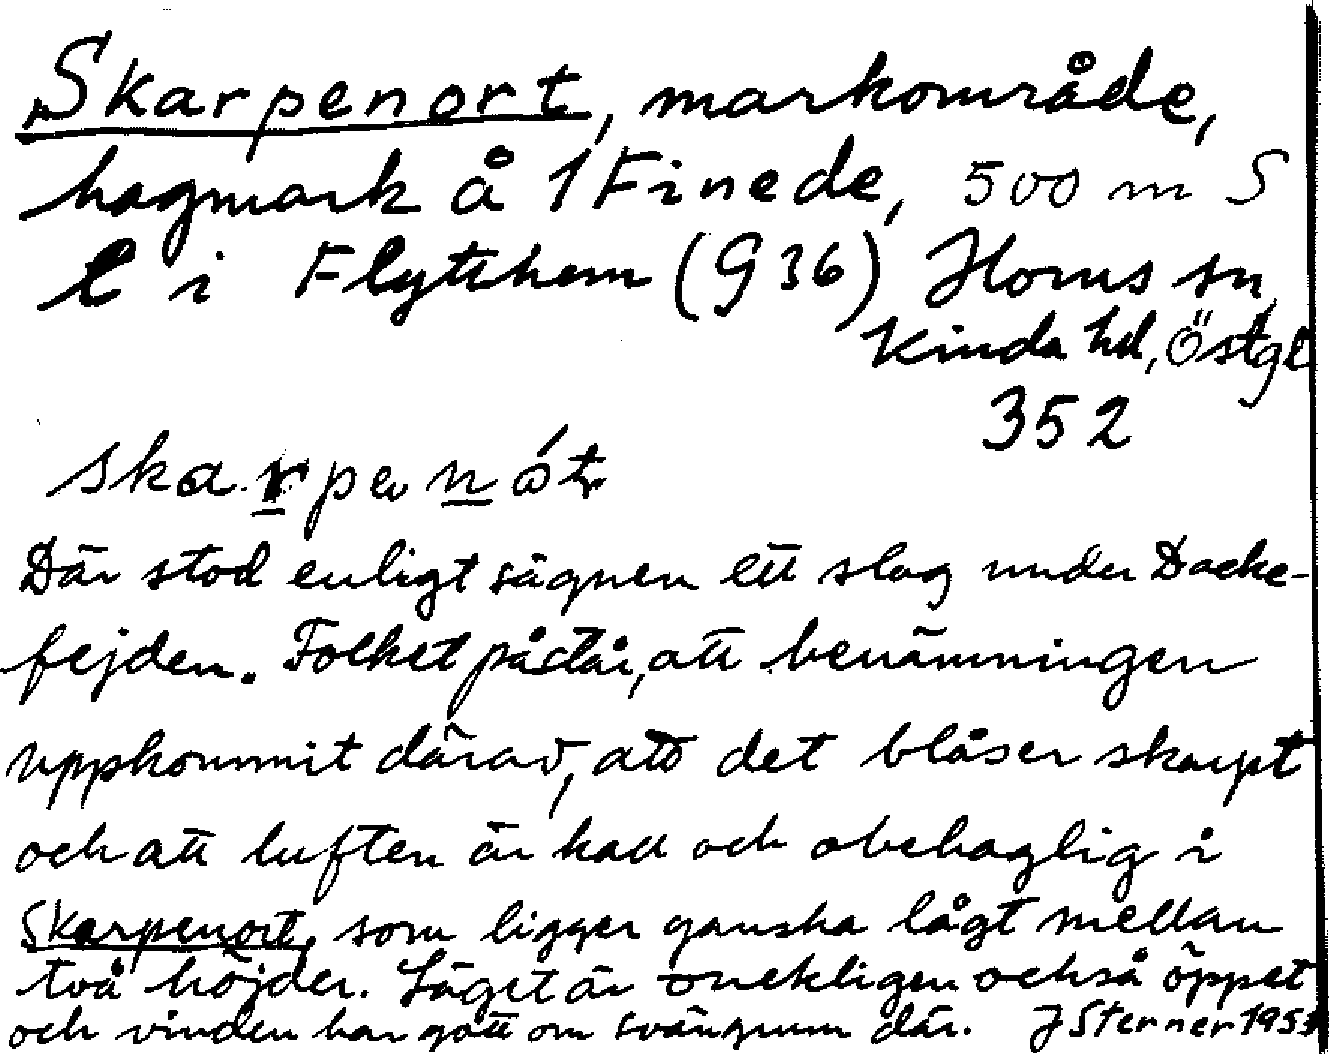 Skarpenort, markområde,
hagmark å 1 Finede, 500 m S
l i Flytthem (G 36) Horns sn,
Kinda hd, Östgl
352
skarpenót
Där stod enligt sägnen ett slag under Dacke-
fejden. Folket påstår, att benämningen
uppkommit därav, att det blåser skarpt
och att luften är kall och obehaglig i
Skarpenort, som ligger ganska lågt mellan
två höjder. Läget är onekligen också öppet
och vinden har gott om svängrum där. J Sterner